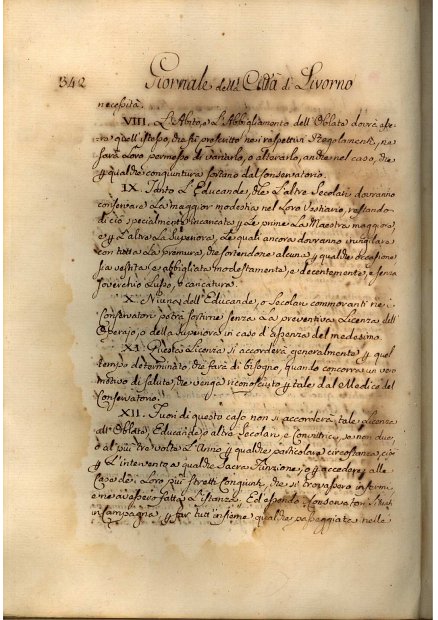 342 Giornale della Città di Livorno
necessità.
VIII. L'Abito, e L'Abbigliamento dell'Oblate dovrà esse-
re quell'istesso, che si è prescritto nei respettivi Regolamenti, ne
sarà Loro permesso di variarlo, o alterarlo, anche nel caso, che
p qualche congiuntura sortano dal Conservatorio.
IX. Tanto L'Educande, che L'altre Secolari dovranno
conservare La maggior modestia nel Loro Vestiario, restando
di ciò specialmente incaricate p Le prime La Maestra maggiore,
e p L'altre La Superiora, Le quali ancora dovranno invigilare
con tutta La premura, che sortendone alcuna p qualche occasione
sia vestita, e abbigliata modestamente, e decentemente, e senza
soverchio Lusso, o caricatura.
X. Niuna dell'Educande, o Secolari commoranti nei
Conservatori potrà sortirne senza La preventiva Licenza dell'
Operajo, o della Superiora in caso d'assenza del medesimo.
XI. Questa Licenza si accorderà generalmente p quel
tempo determinato, che farà di bisogno, quando concorra un vero
motivo di salute, che venga riconosciuto p tale dal Medico del
Conservatorio.
XII. Fuori di questo caso non si accorderà tale Licenza
all'Oblate, Educande, o altre Secolari, e Convittrici, se non due,
o al più tre volte L'Anno p qualche particolare circostanza, cioè
p L'intervento a qualche Sacra Funzione, o p accedere alle
Case de i Loro più stretti Congiunti, che si trovassero infermi
e ne avessero fatta L'istanza. Ed essendo Conservatori
in Campagna, p far tutt'insieme qualche passeggiata nelle